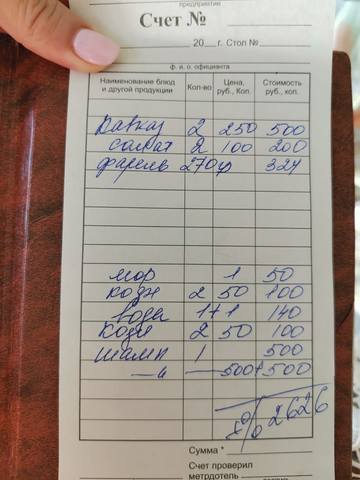 предприятие
Счет №
20 г. Стол №
Ф. и. о. официанта
Наименование блюд и другой продукции Кол-во Цена, руб., коп. Стоимость руб., коп.
Кавказ 2 250 500
салат 2 100 200
форель 270
мор 1 50
кофе 2 50 100
вода 1+1 140
кофе 2 50 100
шамп 1 500
—"— 500+500
10% 2626
Сумма *
Счет проверил
метрдотель